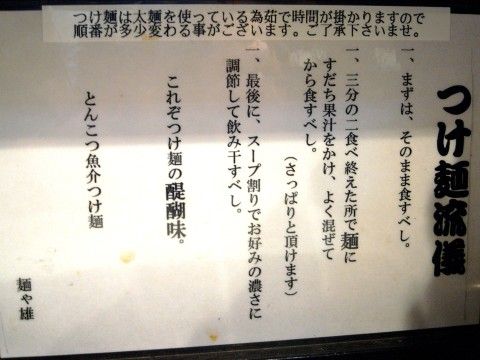 つけ麺は太麺を使っている為茹で時間が掛かりますので
順番が多少変わる事がございます。ご了承下さいませ。
つけ麺流儀
一、まずは、そのまま食すべし。
一、三分の二食べ終えた所で麺に
すだち果汁をかけ、よく混ぜて
から食すべし。
（さっぱりと頂けます）
一、最後に、スープ割りでお好みの濃さに
調節して飲み干すべし。
これぞつけ麺の醍醐味。
とんこつ魚介つけ麺
麺や雄